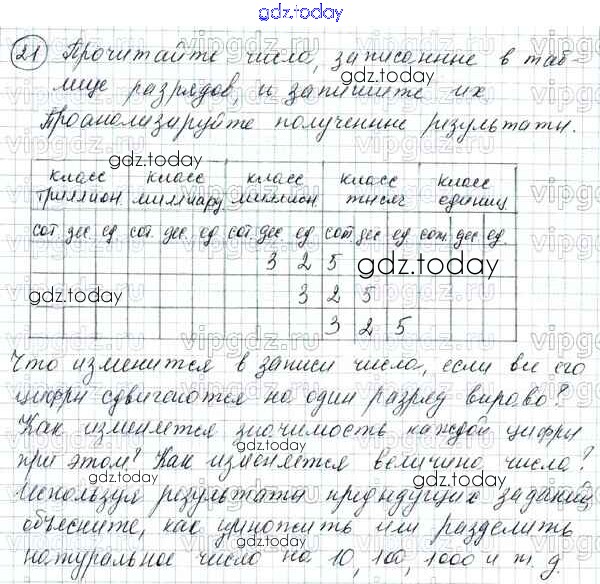 gdz.today
21 Прочитайте числа, записанные в таб-
gdz.today
лице разрядов, и запишите их.
Проанализируйте полученные результаты.
gdz.today
класс триллион класс миллиард класс миллион класс тысяч класс единиц
сот. дес ед сот. дес. ед сот. дес ед сот дес ед сот. дес ед.
3 2 5 gdz.today
gdz.today 3 2 5
3 2 5
Что изменится в записи числа, если все его
цифры сдвигаются на один разряд вправо?
Как изменяется значимость каждой цифры
gdz.today
при этом? Как изменяется величина числа?
Используя результаты предыдущих заданий,
gdz.today
объясните, как умножить или разделить
натуральное число на 10, 100, 1000 и т. д.